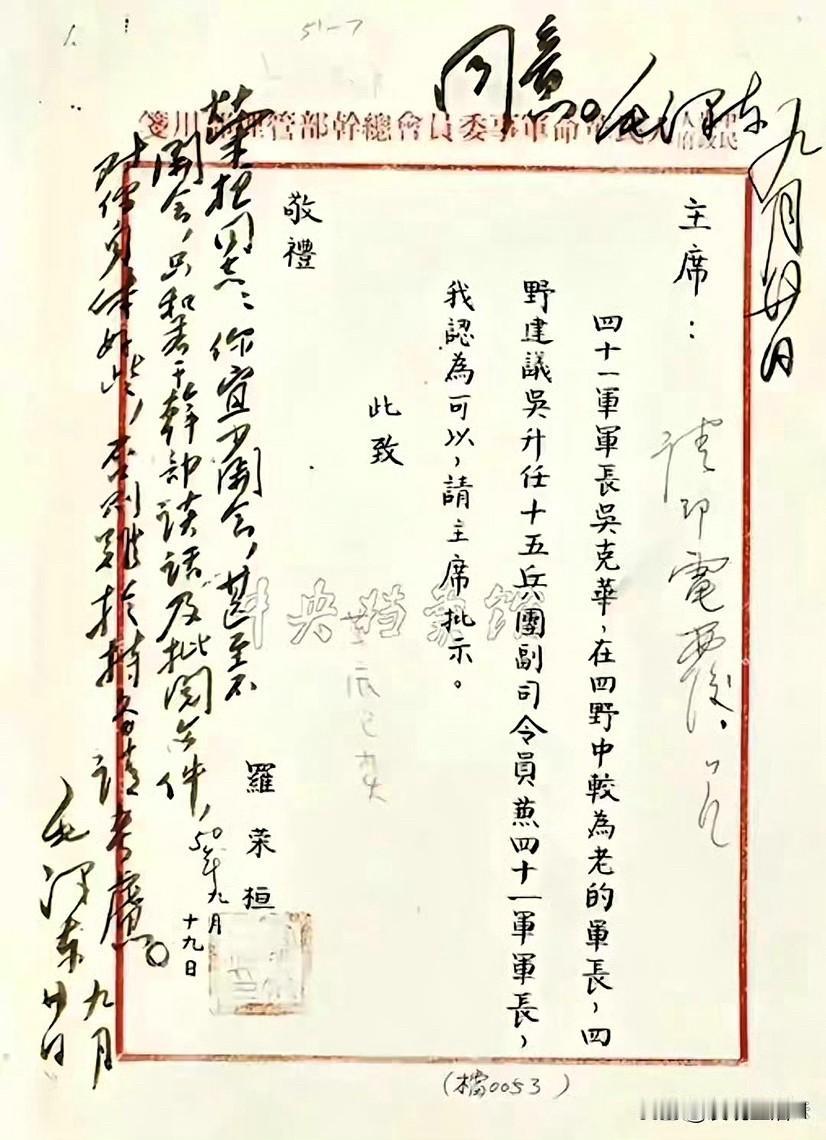 51-7
同意。毛泽东
九月廿日
革命軍事委員會總幹部管理
主席：
四十一軍軍長吳克華，在四野中較為老的軍長，四
野建議吳升任十五兵團副司令員兼四十一軍軍長，
我認為可以，請主席批示。
此致
敬禮
羅荣桓
50年九月
十九日
荣桓同志：你宜少開会，甚至不
開会，只和若干幹部談話及批閱文件，
对你身体好些，否则难於持久，请考慮。
毛泽东
九月
廿日
请即電覆，
中央档案馆
(檔0053)